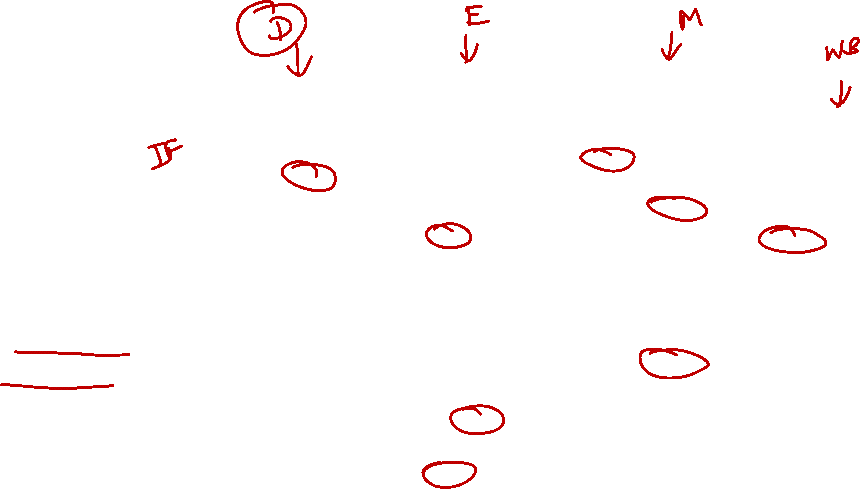 D E M
WB
IF